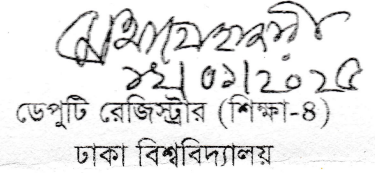 ১২|০১|২০২৫
ডেপুটি রেজিস্ট্রার (শিক্ষা-৪)
ঢাকা বিশ্ববিদ্যালয়